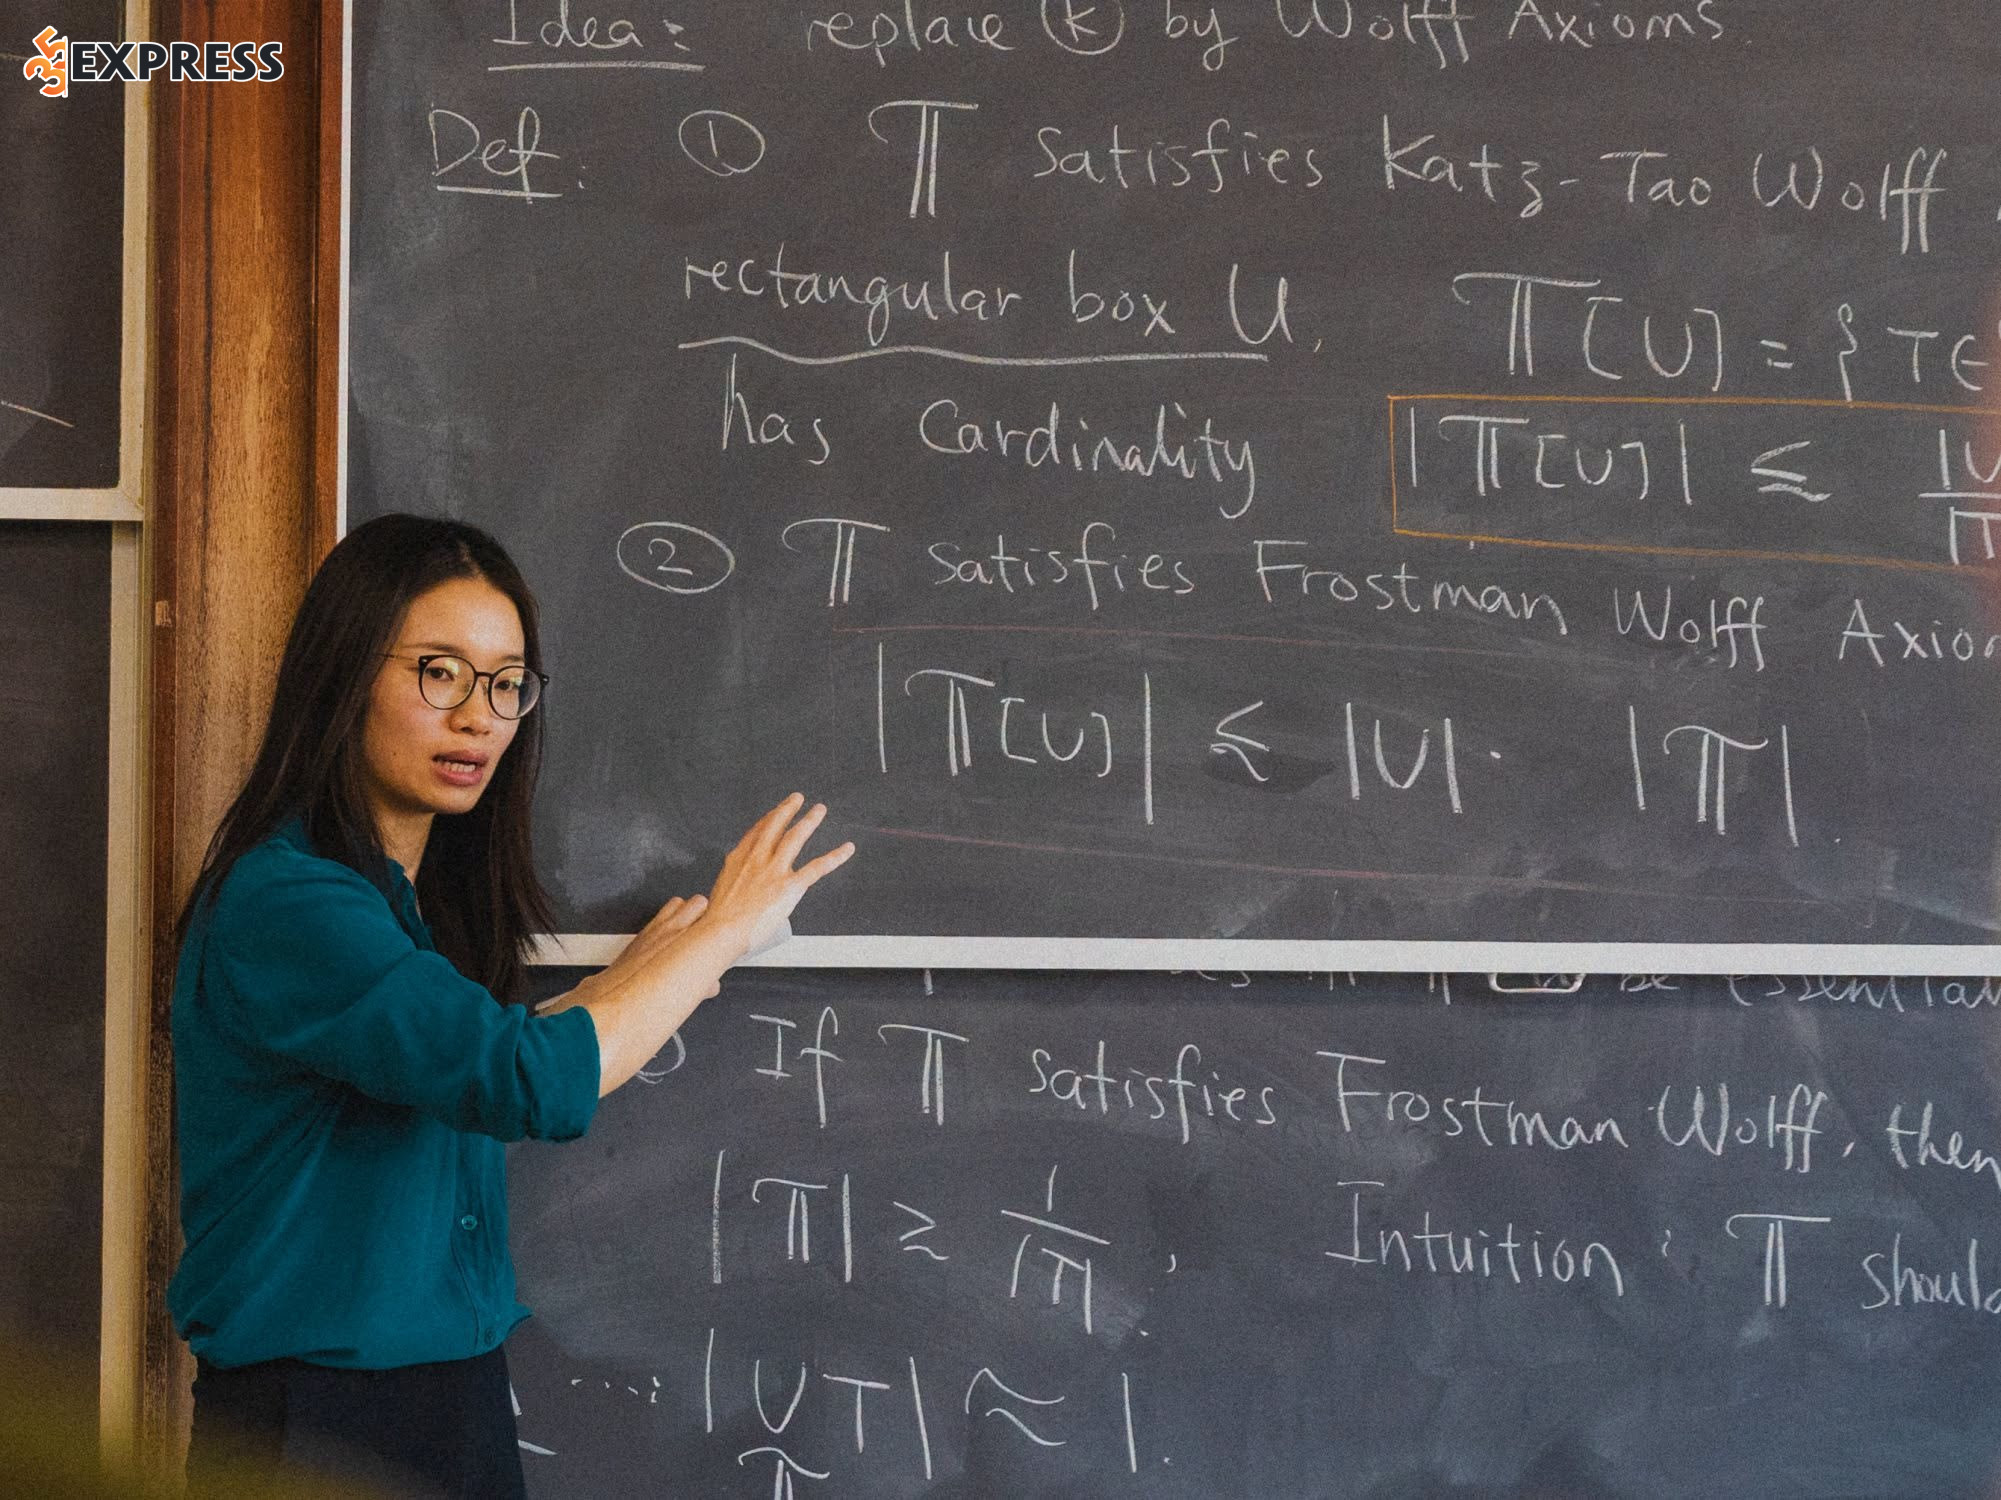 35EXPRESS
Idea: replace Ⓚ by Wolff Axioms.
Def: ① 𝕋 satisfies Katz-Tao Wolff
rectangular box U, 𝕋[U] = { T ∈
has Cardinality |𝕋[U]| ≲ |U
|T
② 𝕋 satisfies Frostman Wolff Axiom
|𝕋[U]| ≲ |U|· |𝕋|.
be essential
If 𝕋 satisfies Frostman Wolff, then
|𝕋| ≳ 1/|T|, Intuition: 𝕋 should
...: |∪T| ≈ 1.
𝕋